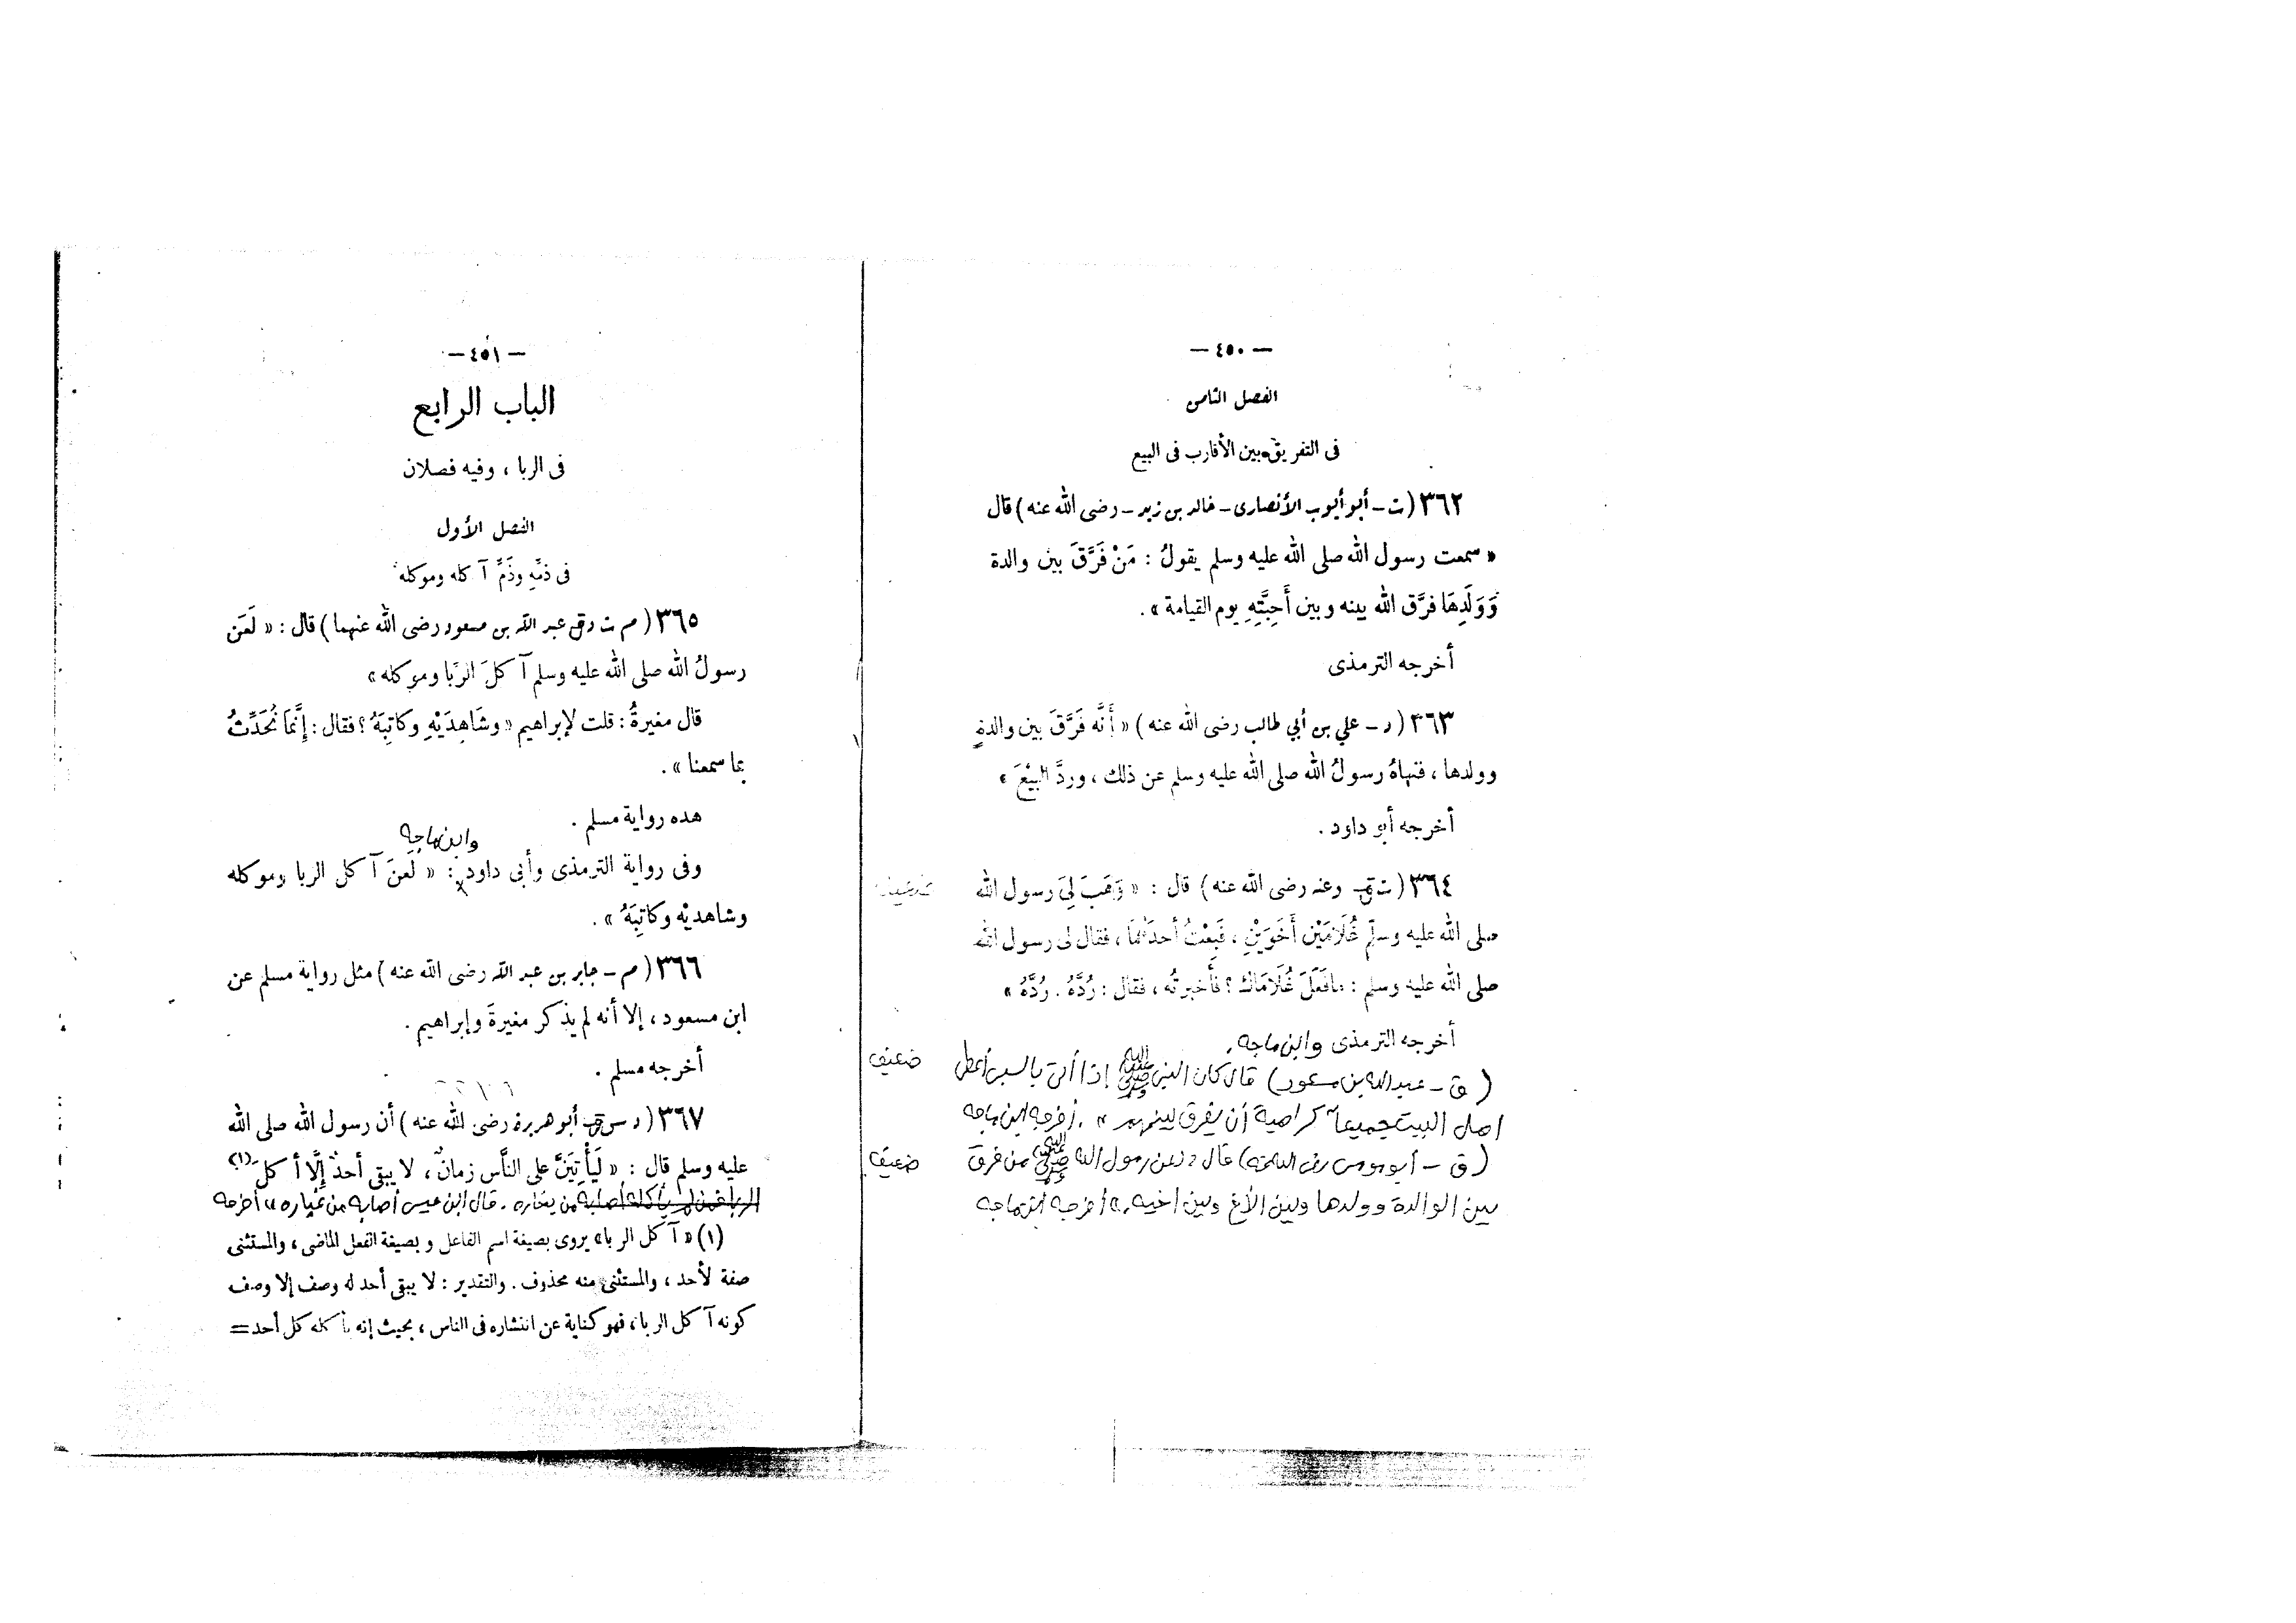 — ٤٥٠ —
الفصل الثامن
فى التفريق بين الأقارب فى البيع
٣٦٢ (ت – أبو أيوب الأنصارى – خالد بن زيد – رضى الله عنه) قال
« سمعت رسول الله صلى الله عليه وسلم يقولُ : مَنْ فَرَّقَ بين والدة
وَوَلَدِهَا فرَّق الله بينه وبين أَحِبَّتِهِ يوم القيامة » .
أخرجه الترمذى
٣٦٣ (د – علي بن أبي طالب رضى الله عنه) « أَنَّه فَرَّقَ بين والدةٍ
وولدها ، فنهاهُ رسولُ الله صلى الله عليه وسلم عن ذلك ، وردَّ البيْعَ »
أخرجه أبو داود .
٣٦٤ (ت ق – وعنه رضى الله عنه) قال : « وَهَبَ لِىَ رسول الله ضعيف
صلى الله عليه وسلم غُلَامَيْن أَخَوَيْنِ ، فَبِعْتُ أحدَهُمَا ، فقال لى رسول الله
صلى الله عليه وسلم : مافَعَلَ غُلَامَاكَ ؟ فأخبرتُه ، فقال : رُدَّهُ . رُدَّهُ »
أخرجه الترمذى وابن ماجه .
(ق – عبد الله بن مسعود) قال كان النبى صلى الله عليه وسلم إذا أتى بالسبى أعطى ضعيف
اهل البيت جميعاً كراهية أن يفرق بينهم » . أخرجه ابن ماجه
(ق – أبو موسى رضى الله عنه) قال : لعن رسول الله صلى الله عليه وسلم من فرق ضعيف
بين الوالدة وولدها وبين الأخ وبين اخيه . » اخرجه ابن ماجه
— ٤٥١ —
الباب الرابع
فى الربا ، وفيه فصلان
الفصل الأول
فى ذمِّه وذَمِّ آكله وموكله
٣٦٥ (م ت د ق عبد الله بن مسعود رضى الله عنهما) قال : « لَعَن
رسولُ الله صلى الله عليه وسلم آكلَ الرِّبا وموكله »
قال مغيرةُ : قلت لإبراهيم « وشَاهِدَيْهِ وكاتِبَهُ ؟ فقال : إِنَّمَا نُحَدِّثُ
بما سمعنا » .
هذه رواية مسلم .
وفى رواية الترمذى وأبى داود وابن ماجه : « لَعَنَ آكل الربا وموكله
وشاهديْه وكاتِبَهُ » .
٣٦٦ (م – جابر بن عبد الله رضى الله عنه) مثل رواية مسلم عن
ابن مسعود ، إلا أنه لم يذكر مغيرةَ وإبراهيم .
أخرجه مسلم .
٣٦٧ (د س ق أبو هريرة رضى الله عنه) أن رسول الله صلى الله
عليه وسلم قال : « لَيَأْتِيَنَّ على النَّاس زمانٌ ، لا يبقى أحدٌ إِلَّا أكلَ (١)
الربا فمن لم يأكله أصابه من بخاره . قال ابن عيسى أصابه من غباره » أخرجه
(١) « آكل الربا » يروى بصيغة اسم الفاعل وبصيغة الفعل الماضى ، والمستثنى
صفة لأحد ، والمستثنى منه محذوف . والتقدير : لا يبقى أحد له وصف إلا وصف
كونه آكل الربا ، فهو كناية عن انتشاره فى الناس ، بحيث إنه يأكله كل أحد =